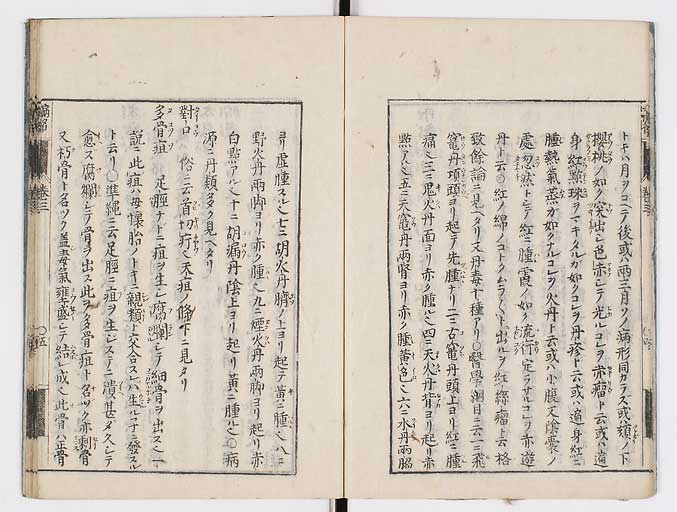 トキハ月ヲコヘテ後或ハ両三月ツヽ病形同カラズ或頬ノ下
櫻桃ノ如ク突出シ色赤シテ光ルコレヲ赤瘤ト云或ハ遍
身紅點珠ヲマキタルガ如クコレヲ丹疹ト云或ハ遍身紅ニ
腫熱氣蒸カ如クナルコレヲ火丹ト云或ハ小腹又陰嚢ノ
處忽然トシテ紅ニ腫霞ノ如ク流行定ラザルコレヲ赤遊
丹ト云〇紅ノ綿ノコトク出ルヲ紅絲瘤ト云格
致餘論ニ見ヘタリ又丹毒十種アリ〇醫學潮日ニ云一ニ飛
竈丹項頭ヨリ起テ先腫ナリ二ニ古竈丹頭上ヨリ紅ニ腫
痛ム三ニ鬼火丹面ヨリ赤ク腫ル四ニ天火丹背ヨリ起リ赤
點アル五ニ天竈丹両臂ヨリ赤ク腫黄色六ニ水丹両脇
ヨリ虚腫スル七ニ胡火丹臍ノ上ヨリ起テ黄ニ腫八ニ
野火丹両脚ヨリ赤ク腫九ニ煙火丹両脚ヨリ起リ赤
白點アル十ニ胡漏丹陰上ヨリ起リ黄ニ腫ル〇病
源ニ丹類多ク見ヘタリ
對口 俗ニ云首切疔天疽ノ條下ニ見タリ
多骨疽 足脛ナトニ疽ヲ生シ腐爛シテ細骨ヲ出ス一
説ニ此疽ハ母懐胎ノトキニ親類ト交合スレハ生ル子ニ發スル
ト云リ〇準縄ニ云足脛ニ疽ヲ生システニ潰甚タ久シテ
愈ス腐爛シテ骨ヲ出ス此ヲ多骨疽ト名ツク亦剰骨
又朽骨ト名ツク蓋毒氣壅盛シテ結ヒ成ス此骨ハ正骨
巻三
〇五